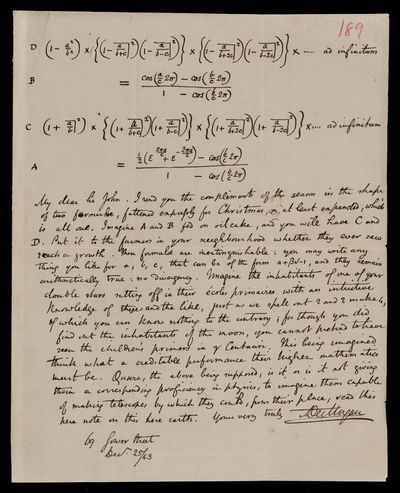 189
D (1 - a²/b²) × {(1 - [a/(b+c)]²)(1 - [a/(b-c)]²)} × {(1 - [a/(b+2c)]²)(1 - [a/(b-2c)]²)} × .... ad infinitum
B = (cos(a/c 2π) - cos(b/c 2π)) / (1 - cos(b/c 2π))
C (1 + a²/b²) × {(1 + [a/(b+c)]²)(1 + [a/(b-c)]²)} × {(1 + [a/(b+2c)]²)(1 + [a/(b-2c)]²)} × .... ad infinitum
A = (½(ε^(2πa/c) + ε^(-2πa/c)) - cos(b/c 2π)) / (1 - cos(b/c 2π))
My dear Sir John. I send you the compliments of the season in the shape
of two formulæ, fattened expressly for Christmas, or at least expanded, which
is all one. Imagine A and B fed on oil cake, and you will have C and
D. Put it to the farmers in your neighbourhood whether they ever saw
such a growth. These formulæ are inextinguishable: you may write any
thing you like for a, b, c, that can be of the form α+β√-1, and they remain
arithmetically true: no divergency. Imagine the inhabitants of one of your
double stars setting off in their écoles primaires with an intuitive
knowledge of these and the like, just as we spell out 2 and 2 make 4,
of which you can know nothing to the contrary; for though you did
find out the inhabitants of the moon, you cannot pretend to have
seen the children's primers in γ Centauri. This being imagined
think what a creditable performance their higher mathematics
must be. Quære, the above being supposed, is it or is it not giving
them a corresponding proficiency in physics, to imagine them capable
of making telescopes by which they could, from their place, read this
here note on this here earth. Yours very truly
ADeMorgan
69 Gower Street
Decr 25/43